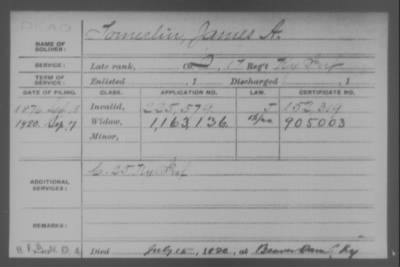 DEAD
NAME OF SOLDIER: Tomerlin, James A.
SERVICE: Late rank, Co. 17 Reg't Ky Inf
TERM OF SERVICE: Enlisted , 1 Discharged , 1
DATE OF FILING. CLASS. APPLICATION NO. LAW. CERTIFICATE NO.
Invalid, 225,579
1920. Sep. 7 Widow, 1,163,136 905003
Minor,
ADDITIONAL SERVICES: C. 25 Ky Inf
REMARKS:
Died July 15 1920, at Beaver Dam Ky